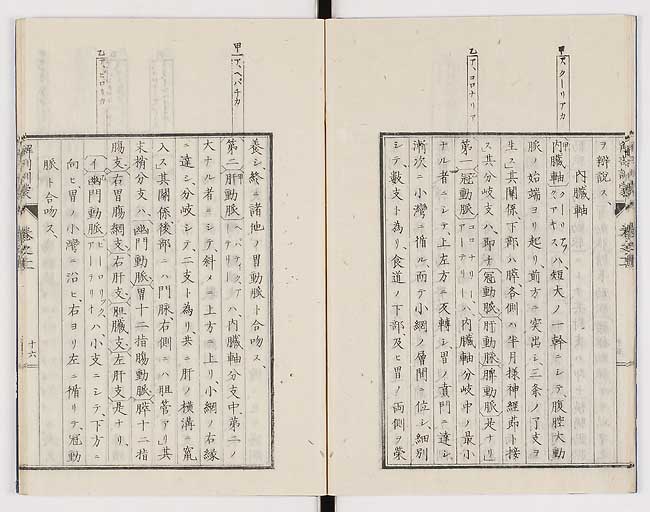 甲 ア、クーリアカ
乙 ア、コロナリア
ヲ辯説ス、
内臓軸
内臓軸ハ短大ノ一幹ニシテ、腹腔大動
脈ノ始端ヨリ起リ前方ニ突出シ三条ノ了支ヲ
生ス其關係、下部ハ膵、各側ハ半月様神經節ト接
ス其分岐支ハ、即チ冠動脈肝動脉脾動脈是ナリ
第一冠動脈 内臓軸分岐中ノ最小
ナル者ニシテ上左方ニ反轉シ胃ノ賁門ニ達シ
漸次ニ小灣ニ循ル、而テ小網ノ層間ニ位シ細別
シテ、數支ト為リ、食道ノ下部及ヒ胃ノ両側ヲ榮
甲 ア、ヘパチカ
乙 ア、ピロリカ
養シ終ニ諸他ノ胃動脉ト合吻ス、
第二肝動脈 ハ内臓軸分支中、第二ノ
大ナル者ニシテ、斜メニ上方ニ上リ小網ノ右縁
ニ達シ分岐シテ、二支ト為リ共ニ肝ノ横溝ニ竄
入ス其關係後部ニハ門脉右側ニハ胆管アリ其
末梢分支ハ、幽門動脈胃十二指腸動脈膵十二指
腸支右胃腸網支右肝支胆臓支左肝支是ナリ、
イ幽門動脈 ハ小支ニシテ、下方ニ
向ヒ胃ノ小灣ニ沿ヒ右ヨリ左ニ循リテ冠動
脈ト合吻ス、
解剖訓蒙
十六